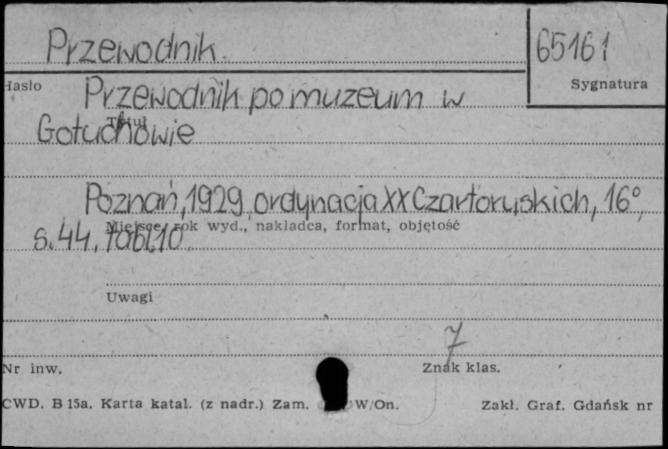 Przewodnik.
65161
Hasło
Sygnatura
Przewodnik po muzeum w
Tytuł
Gołuchowie
Poznań, 1929, ordynacja XX Czartoryskich, 16°,
Miejsce, rok wyd., nakładca, format, objętość
s. 44, tabl. 10.
Uwagi
7
Nr inw.
Znak klas.
CWD. B 15a. Karta katal. (z nadr.) Zam. W/On.
Zakł. Graf. Gdańsk nr